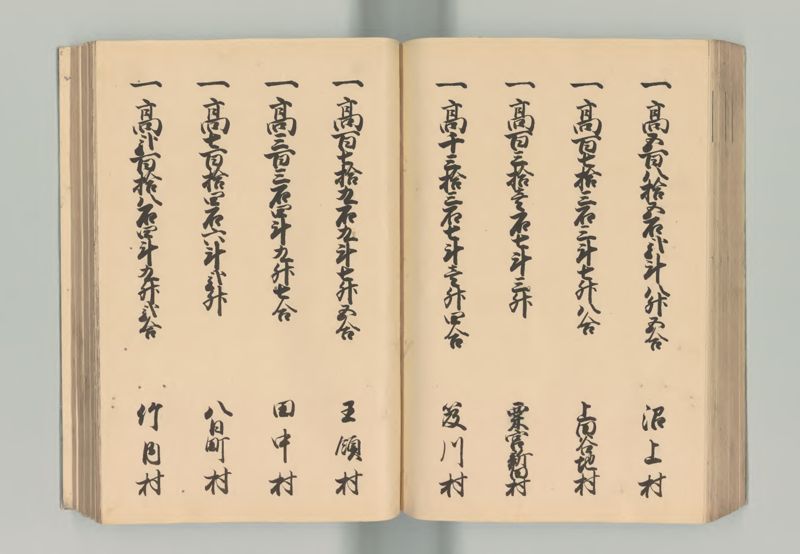 一高五百八拾五石弐斗八升五合 沼上村
一高百七拾三石三斗七升八合 上関谷地村
一高百三拾壱石七斗三升 粟宮新田村
一高千三拾三石七斗壱升四合 笈川村
一高百七拾九石九斗七升五合 王領村
一高三百三石四斗九升七合 田中村
一高七百拾四石六斗弐升 八日町村
一高弐百拾八石四斗九升弐合 竹村